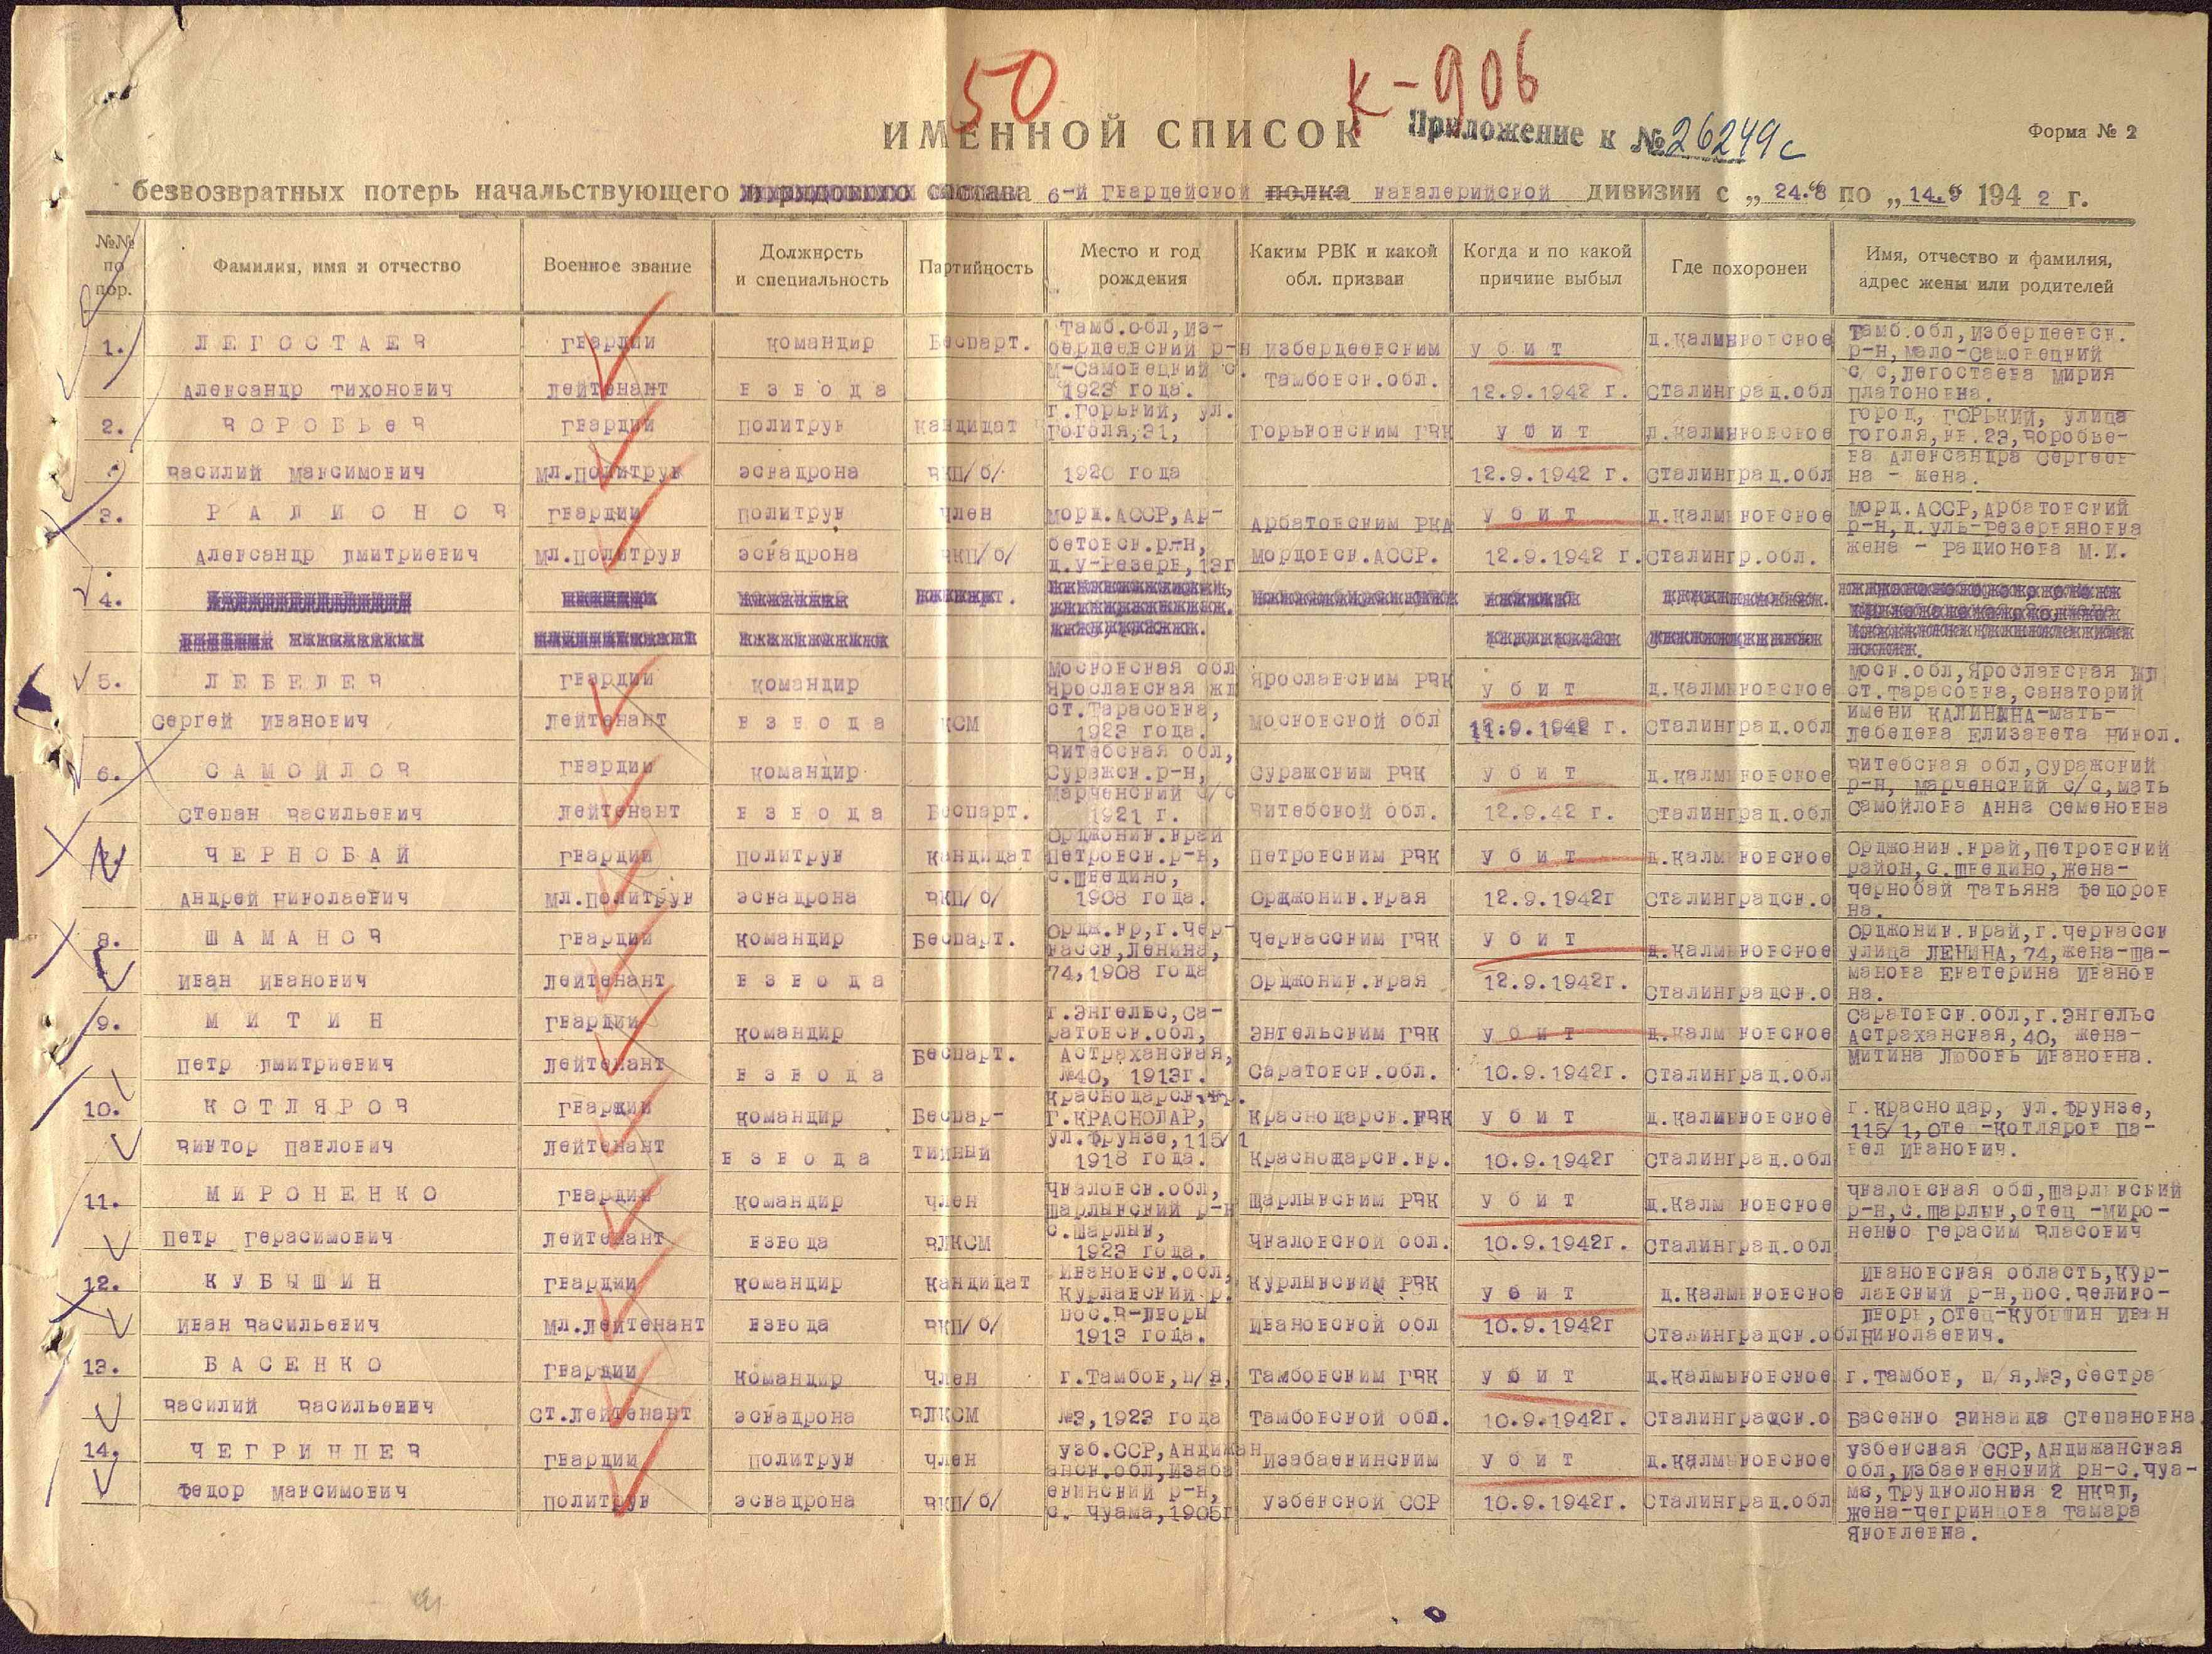 50
К-906
ИМЕННОЙ СПИСОК
Приложение к № 26249с
Форма № 2
безвозвратных потерь начальствующего и рядового состава 6-й Гвардейской полка кавалерийской дивизии с „ 24.8 " по „ 14.9 " 194 2 г.
№№ по пор.
Фамилия, имя и отчество
Военное звание
Должность и специальность
Партийность
Место и год рождения
Каким РВК и какой обл. призван
Когда и по какой причине выбыл
Где похоронен
Имя, отчество и фамилия, адрес жены или родителей
1.
ЛЕГОСТАЕВ
Александр Тихонович
Гвардии
Лейтенант
Командир
взвода
Беспарт.
Тамб.обл,Из-
бердеевский р-н
М-Самовецкий с.
1923 года.
Избердеевским
Тамбовск.обл.
убит
12.9.1942 г.
д.Калмыковское
Сталинград.обл
Тамб.обл,Избердеевск.
р-н, Мало-Самовецкий
с/с,Легостаева Мирия
Платоновна.
2.
ВОРОБЬеВ
Василий Максимович
Гвардии
Мл.Политрук
Политрук
эскадрона
Кандидат
ВКП/б/
г.Горький, ул.
Гоголя,31,
1920 года
Горьковским ГВК
убит
12.9.1942 г.
д.Калмыковское
Сталинград.обл
город, ГОРЬКИЙ, улица
Гоголя,кв.23,Воробье-
ва Александра Сергеев
на - жена.
3.
РАДИОНОВ
Александр Дмитриевич
Гвардии
Мл.Политрук
Политрук
эскадрона
член
ВКП/б/
Морд.АССР,Ар-
бетовск.р-н,
д.У-Резерв,13г
Арбатовским РКА
Мордовск.АССР.
убит
12.9.1942 г.
д.Калмыковское
Сталингр.обл.
Морд.АССР,Арбатовский
р-н,д.Уль-Резервяновка
жена - Радионова М.И.
4.
5.
ЛЕБЕДЕВ
Сергей Иванович
Гвардии
Лейтенант
Командир
взвода
КСМ
Московская обл
Ярославская жд
ст.Тарасовка,
1923 года.
Ярославским РВК
Московской обл
убит
11.9.1942 г.
д.Калмыковское
Сталинград.обл
Моск.обл,Ярославская жд
ст.Тарасовка,санаторий
имени КАЛИНИНА-мать-
Лебедева Елизавета Никол.
6.
САМОЙЛОВ
Степан Васильевич
Гвардии
Лейтенант
Командир
взвода
Беспарт.
Витебская обл,
Суражск.р-н,
Марченский с/с
1921 г.
Суражским РВК
Витебской обл.
убит
12.9.42 г.
д.Калмыковское
Сталинград.обл
Витебская обл,Суражский
р-н, Марченский с/с,мать
Самойлова Анна Семеновна
7.
ЧЕРНОБАЙ
Андрей Николаевич
Гвардии
Мл.Политрук
Политрук
эскадрона
Кандидат
ВКП/б/
Орджоник.край
Петровск.р-н,
с.Шведино,
1908 года.
Петровским РВК
Орджоник.края
убит
12.9.1942г
д.Калмыковское
Сталинградск.о
Орджоник.край,Петровский
район,с.Шведино,жена-
Чернобай Татьяна Федоров
на.
8.
ШАМАНОВ
Иван Иванович
Гвардии
Лейтенант
Командир
взвода
Беспарт.
Ордж.кр,г.Чер-
касск,Ленина,
74,1908 года
Черкасским ГВК
Орджоник.края
убит
12.9.1942г.
д.Калмыковское
Сталинградск.о
Орджоник.край,г.Черкасск
улица ЛЕНИНА,74,жена-Ша-
манова Екатерина Иванов
на.
9.
МИТИН
Петр Дмитриевич
Гвардии
Лейтенант
Командир
взвода
Беспарт.
г.Энгельс,Са-
ратовск.обл,
Астраханская,
№40, 1913г.
Энгельским ГВК
Саратовск.обл.
убит
10.9.1942г.
д.Калмыковское
Сталинград.обл
Саратовск.обл,г.Энгельс
Астраханская,40, жена-
Митина Любовь Ивановна.
10.
КОТЛЯРОВ
Виктор Павлович
Гвардии
Лейтенант
Командир
взвода
Беспар-
тийный
Краснодарск.кр.
Г.КРАСНОДАР,
ул.Фрунзе,115/1
1918 года.
Краснодарск.ГВК
Краснодарск.кр.
убит
10.9.1942г
д.Калмыковское
Сталинград.обл
г.Краснодар, ул.Фрунзе,
115/1,отец-Котляров Па-
вел Иванович.
11.
МИРОНЕНКО
Петр Герасимович
Гвардии
Лейтенант
Командир
взвода
член
ВЛКСМ
Чкаловск.обл,
Шарлыкский р-н
с.Шарлык,
1923 года.
Шарлыкским РВК
Чкаловской обл.
убит
10.9.1942г.
д.Калмыковское
Сталинград.обл
Чкаловская обл,Шарлыкский
р-н,с.Шарлык,отец -Миро-
ненко Герасим Власович
12.
КУБЫШИН
Иван Васильевич
Гвардии
Мл.Лейтенант
Командир
взвода
Кандидат
ВКП/б/
Ивановск.обл,
Курлавский р.
пос.В-Дворы
1913 года.
Курлыкским РВК
Ивановской обл
убит
10.9.1942г
д.Калмыковское
Сталинградск.обл
Ивановская область,Кур-
лавский р-н,пос.Велико-
Дворы,отец-Кубышин Иван
Николаевич.
13.
БАСЕНКО
Василий Васильевич
Гвардии
Ст.Лейтенант
Командир
эскадрона
член
ВЛКСМ
г.Тамбов,п/я,
№3,1923 года
Тамбовским ГВК
Тамбовской обл.
убит
10.9.1942г.
д.Калмыковское
Сталинградск.о
г.Тамбов, п/я,№3,сестра
Басенко Зинаида Степановна.
14.
ЧЕГРИНЦЕВ
Федор Максимович
Гвардии
Политрук
Политрук
эскадрона
член
ВКП/б/
Узб.ССР,Андижан
анск.обл,Изаба
екинский р-н,
с. Чуама,1905г
Изабаекинским
Узбекской ССР
убит
10.9.1942г.
д.Калмыковское
Сталинград.обл
Узбекская ССР,Андижанская
обл,Избаекенский рн-с.Чуа-
ма,Трудколония 2 НКВД,
жена-Чегринцова Тамара
Яковлевна.